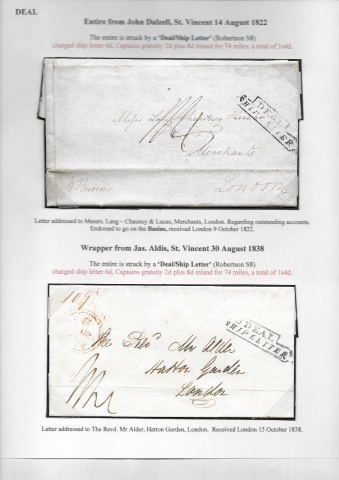 DEAL
Entire from John Dalzell, St. Vincent 14 August 1822
The entire is struck by a 'Deal/Ship Letter' (Robertson S8)
charged ship letter 6d, Captains gratuity 2d plus 8d inland for 74 miles, a total of 1s4d.
Messrs Lang Chauncy Lucas
Merchants
London
DEAL
SHIP LETTER
Letter addressed to Messrs. Lang – Chauncy & Lucas, Merchants, London. Regarding outstanding accounts.
Endorsed to go on the Busins, received London 9 October 1822.
Wrapper from Jas. Aldis, St. Vincent 30 August 1838
The entire is struck by a 'Deal/Ship Letter' (Robertson S8)
charged ship letter 6d, Captains gratuity 2d plus 8d inland for 74 miles, a total of 1s4d.
109
DEAL
SHIP LETTER
The Revd Mr Alder
Hatton Garden
London
Letter addressed to The Revd. Mr Alder, Hatton Garden, London. Received London 15 October 1838.